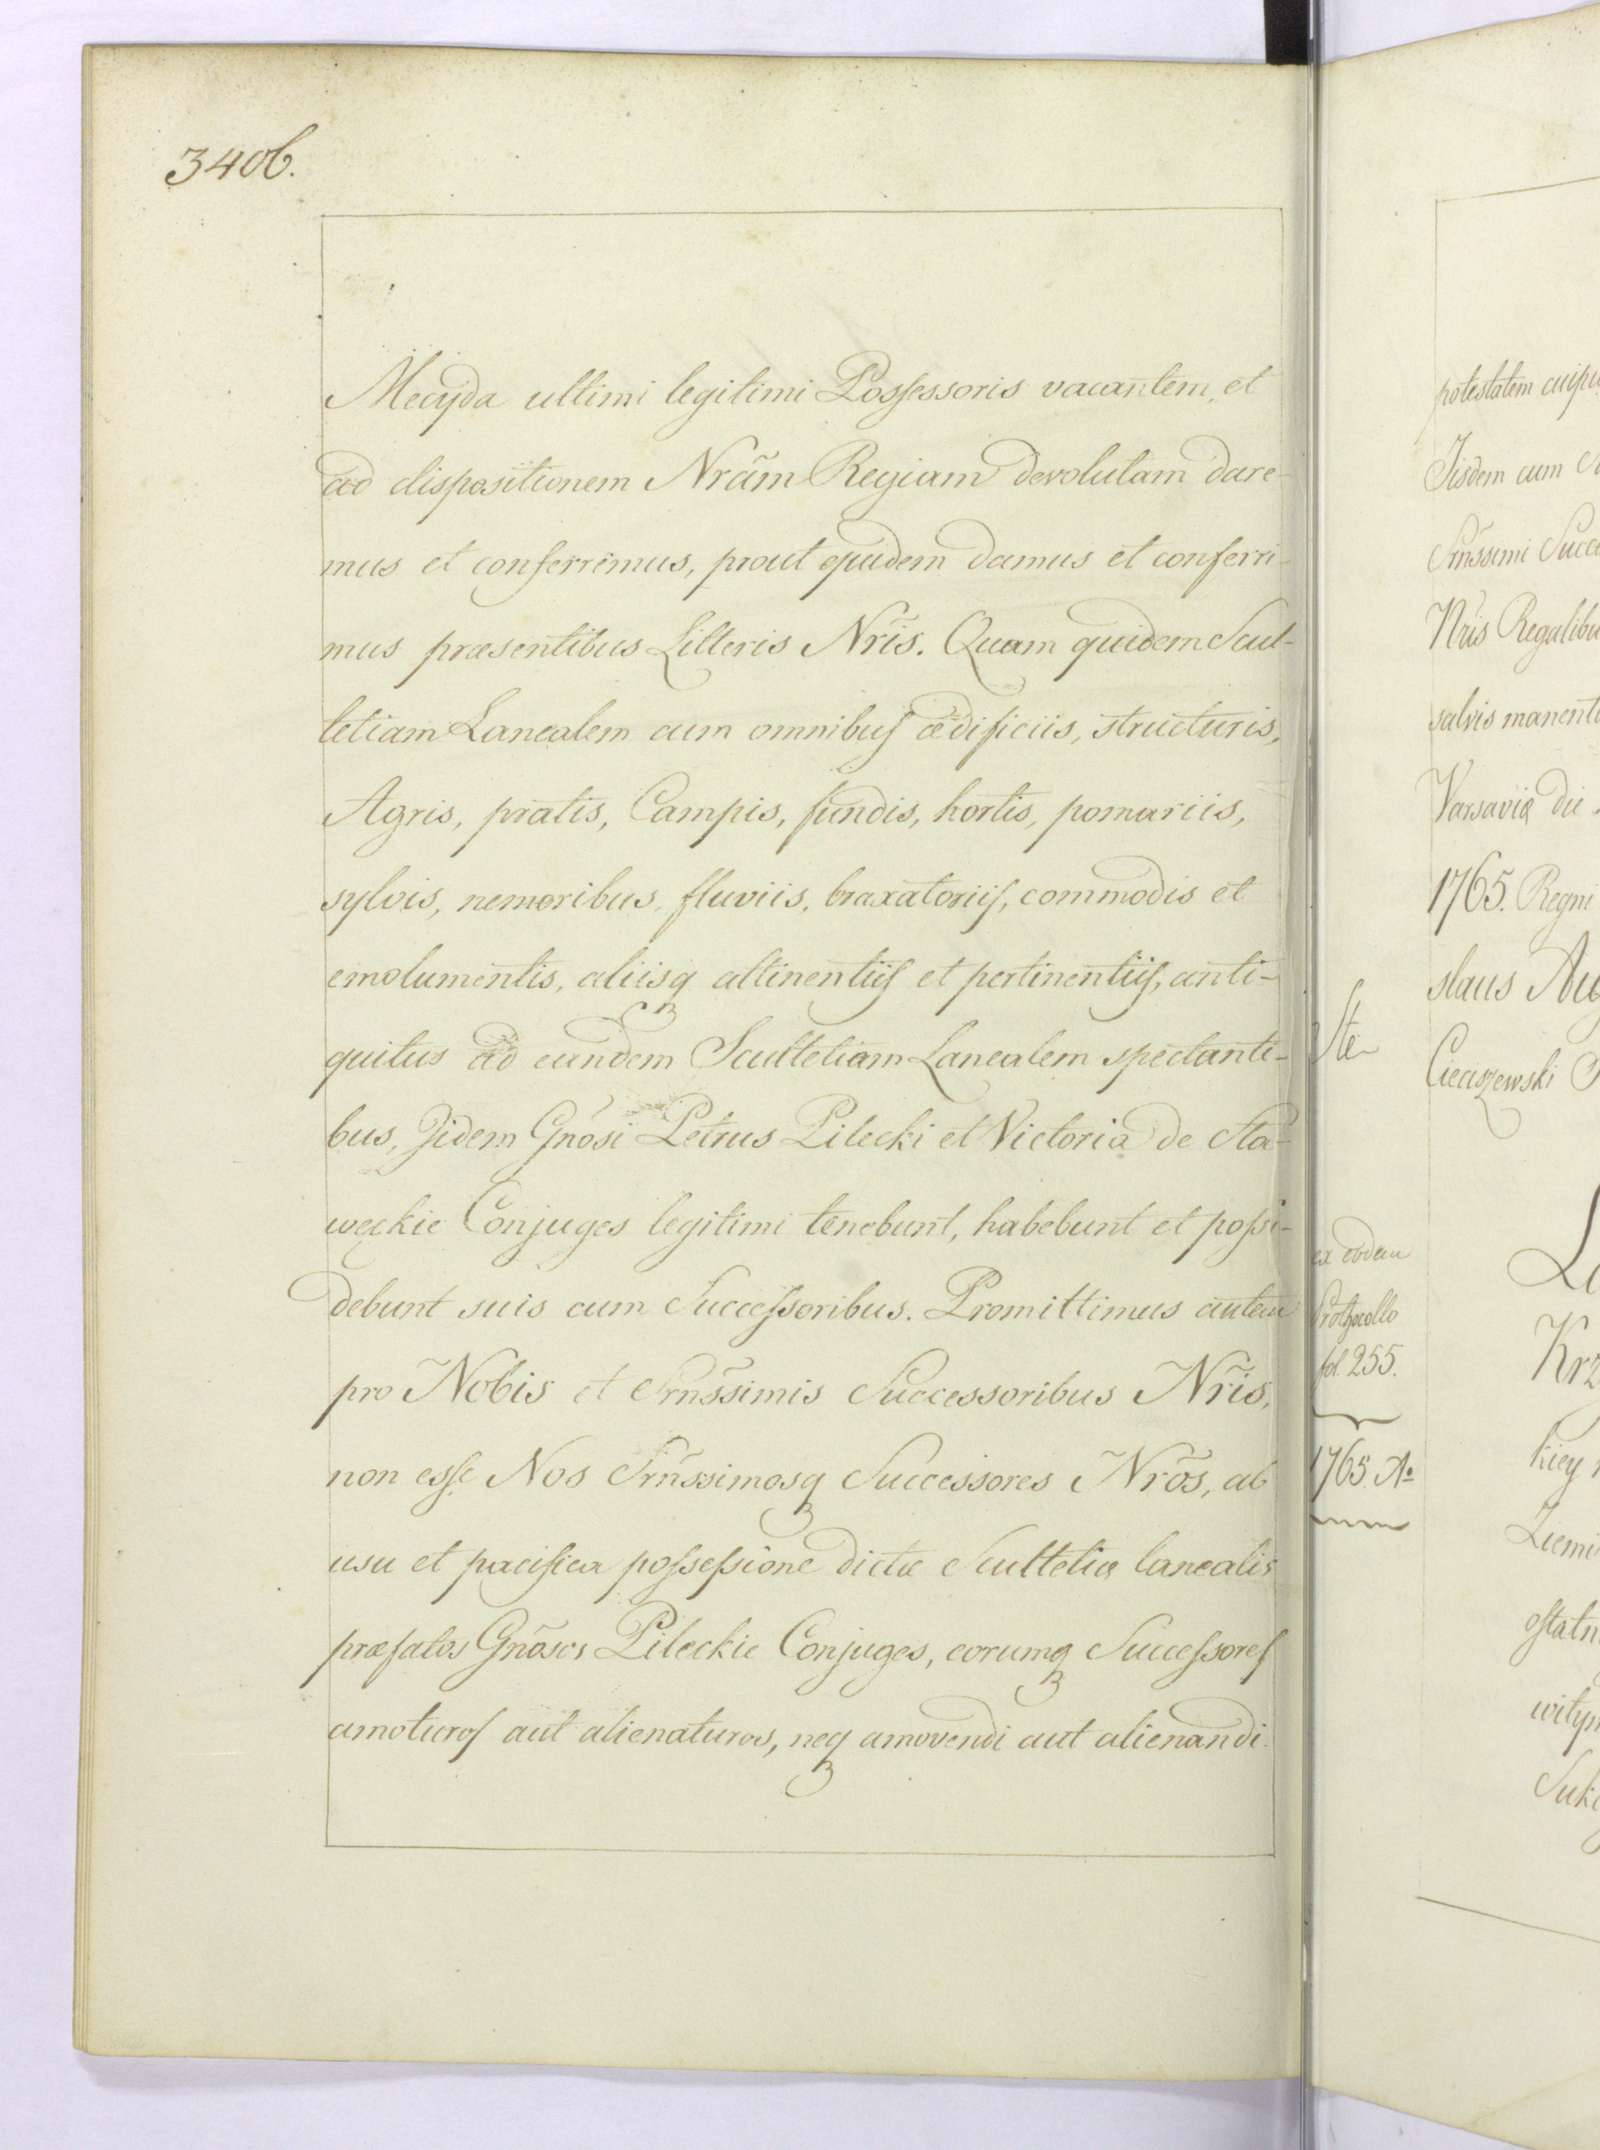 3406.
Mecyda ultimi legitimi Possessoris vacantem, et
ad dispositionem Nrãm Regiam devolutam dare-
mus et conferremus, prout ejusdem damus et conferri-
mus præsentibus Litteris Nrĩs. Quam quidem Scul-
tetiam Lanealem cum omnibus ædificiis, structuris,
Agris, pratis, Campis, fundis, hortis, pomariis,
sylvis, nemoribus, fluviis, braxatoriis, commodis et
emolumentis, aliisq attinentiis et pertinentiis, anti-
quitus ad eandem Scultetiam Lanealem spectanti-
bus, Jidem Gnõsi Petrus Pilecki et Victoria de Sta-
weckie Conjuges legitimi tenebunt, habebunt et possi-
debunt suis cum Successoribus. Promittimus autem
pro Nobis et Srñssimis Successoribus Nrĩs,
non esse Nos Srñssimosq Successores Nrõs, ab
usu et pacifica possessione dictæ Scultetiæ lanealis
præfatos Gnõsos Pileckie Conjuges, eorumq Successores
amoturos aut alienaturos, neq amovendi aut alienandi
potestatem cuipi
Jisdem cum
Srñssimi Succe
Nrĩs Regalibu
salvis manenti
Varsaviæ die
1765. Regni
slaus Au
Cieciszewski
Ste-
ex eodem
Prothocollo
fol. 255.
1765 Ao
Krz
kiey
Ziemi
ostatn
witym
Suk